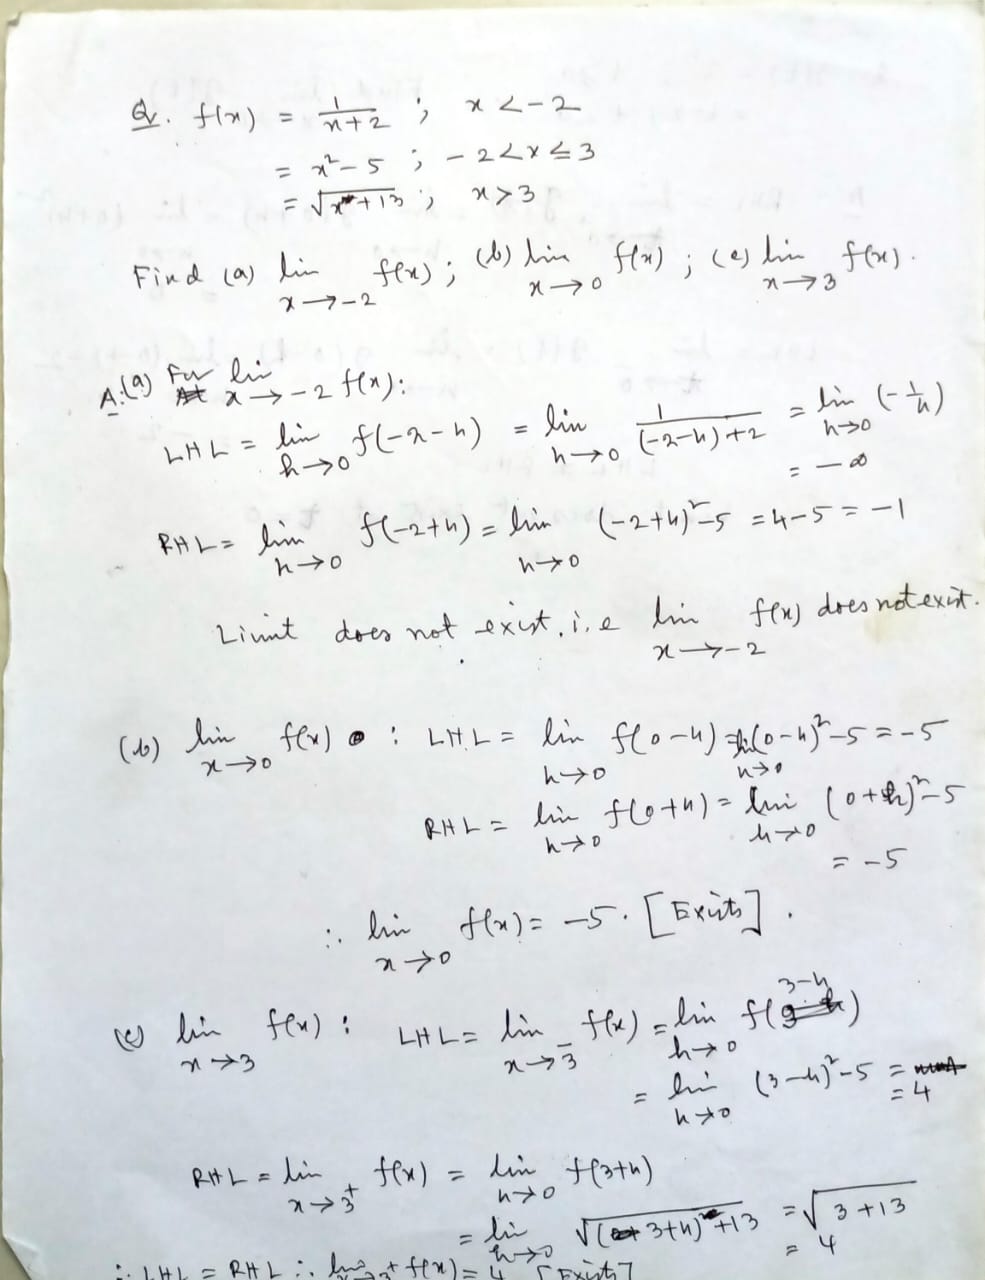 Q. f(x) = 1/(x+2) ; x < -2
= x² - 5 ; - 2 < x ≤ 3
= √(x+13) ; x > 3
Find (a) lim x→-2 f(x) ; (b) lim x→0 f(x) ; (c) lim x→3 f(x).
A:(a) For lim x→-2 f(x):
LHL = lim h→0 f(-2-h) = lim h→0 1/((-2-h)+2) = lim h→0 (-1/h)
= -∞
RHL = lim h→0 f(-2+h) = lim h→0 (-2+h)²-5 = 4-5 = -1
Limit does not exist. i.e lim x→-2 f(x) does not exist.
(b) lim x→0 f(x) : LHL = lim h→0 f(0-h) = lim h→0 (0-h)²-5 = -5
RHL = lim h→0 f(0+h) = lim h→0 (0+h)²-5
= -5
∴ lim x→0 f(x) = -5. [Exists].
(c) lim x→3 f(x) : LHL = lim x→3⁻ f(x) = lim h→0 f(3-h)
= lim h→0 (3-h)²-5 =
= 4
RHL = lim x→3⁺ f(x) = lim h→0 f(3+h)
= lim h→0 √((3+h)+13) = √(3+13)
= 4
∴ LHL = RHL ∴ lim x→3⁺ f(x) = 4 [Exists]